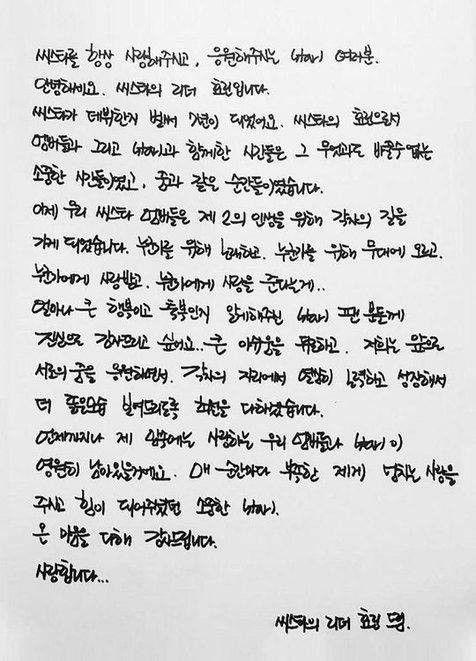 씨스타를 항상 사랑해주시고, 응원해주시는 스타원 여러분.
안녕하세요. 씨스타의 리더 효린입니다.
씨스타가 데뷔한지 벌써 7년이 되었어요. 씨스타의 효린으로서
멤버들과 그리고 스타원과 함께한 시간들은 그 무엇과도 바꿀수 없는
소중한 시간들이였고, 꿈과 같은 순간들이였습니다.
이제 우리 씨스타 멤버들은 제 2의 인생을 위해 각자의 길을
가게 되었습니다. 누군가를 위해 노래하고. 누군가를 위해 무대에 오르고.
누군가에게 사랑받고. 누군가에게 사랑을 준다는게..
얼마나 큰 행복이고 축복인지 알게해주신 스타원 팬 분들께
진심으로 감사드리고 싶어요.. 큰 아쉬움을 뒤로하고. 저희는 앞으로
서로의 꿈을 응원하면서. 각자의 자리에서 열심히 노력하고 성장해서
더 좋은모습 보여드리도록 최선을 다하겠습니다.
언제까지나 제 맘속에는 사랑하는 우리 멤버들과 스타원이
영원히 남아있을거에요. 매 순간마다 부족한 제게 넘치는 사랑을
주시고 힘이 되어주셨던 소중한 스타원.
온 마음을 다해 감사드립니다.
사랑합니다...
씨스타의 리더 효린 드림.